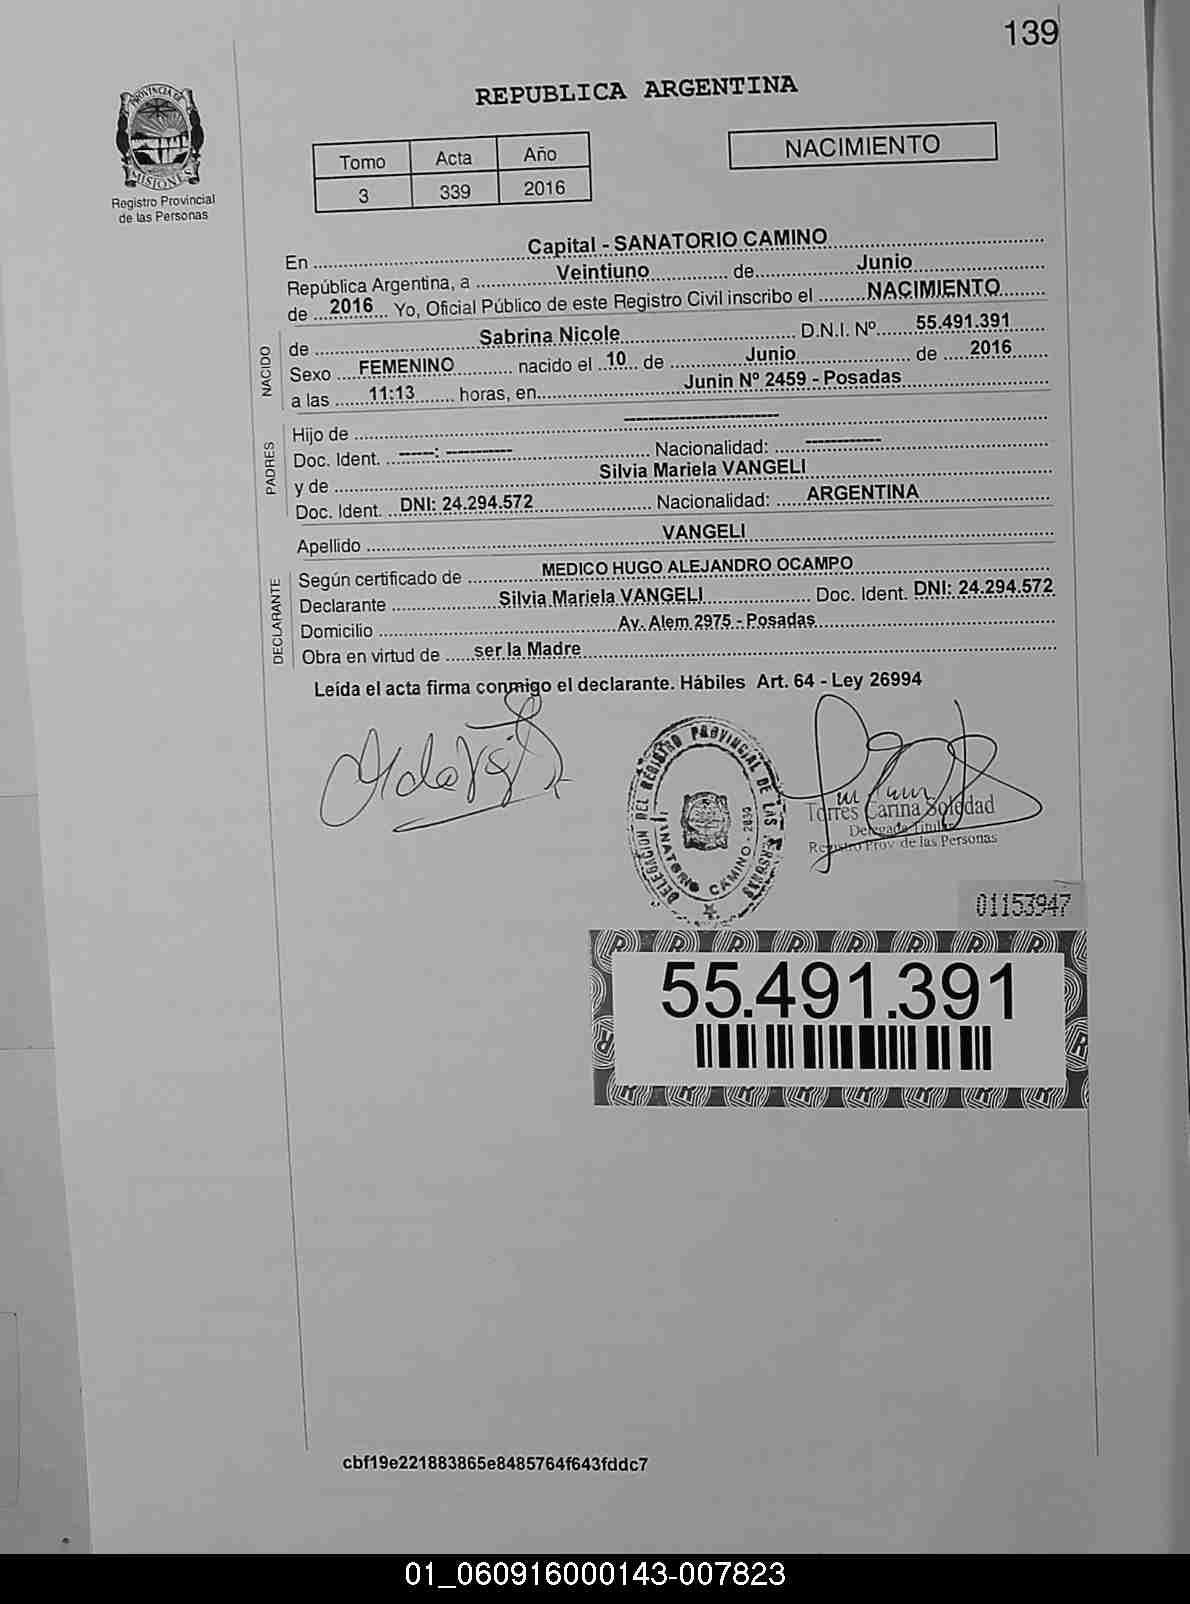 139
REPUBLICA ARGENTINA
PROVINCIA DE
MISIONES
Registro Provincial
de las Personas
Tomo Acta Año
3 339 2016
NACIMIENTO
En Capital - SANATORIO CAMINO
República Argentina, a Veintiuno de Junio
de 2016 Yo, Oficial Público de este Registro Civil inscribo el NACIMIENTO
NACIDO
de Sabrina Nicole D.N.I. Nº 55.491.391
Sexo FEMENINO nacido el 10 de Junio de 2016
a las 11:13 horas, en Junin Nº 2459 - Posadas
PADRES
Hijo de --------------------
Doc. Ident. -----: ---------- Nacionalidad: ------------
y de Silvia Mariela VANGELI
Doc. Ident. DNI: 24.294.572 Nacionalidad: ARGENTINA
Apellido VANGELI
DECLARANTE
Según certificado de MEDICO HUGO ALEJANDRO OCAMPO
Declarante Silvia Mariela VANGELI Doc. Ident. DNI: 24.294.572
Domicilio Av. Alem 2975 - Posadas
Obra en virtud de ser la Madre
Leída el acta firma conmigo el declarante. Hábiles Art. 64 - Ley 26994
DELEGACION DEL REGISTRO PROVINCIAL DE LAS PERSONAS
SANATORIO CAMINO - 2830
Torres Carina Soledad
Delegada Titular
Registro Prov de las Personas
01153947
55.491.391
cbf19e221883865e8485764f643fddc7
01_060916000143-007823